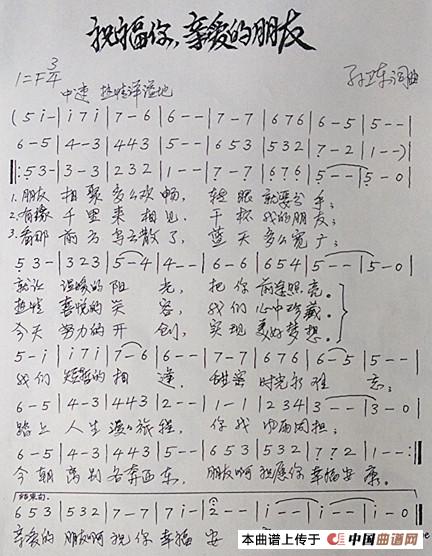 祝福你，亲爱的朋友
1=F 3/4
中速 热情洋溢地
孙卫东词曲
(5 i - | i 7 i | 7 - 6 | 6 - - | 7 - 7 | 6 7 6 | 6 - 5 | 5 - - |
6 - 5 | 4 - 3 | 4 4 3 | 5 - - | 6 5 3 | 5 3 2 | 7 - 2 | 1 - -) |
‖: 5 3 - | 3 - 3 | 2 3 2 | 1 - - | 7 - 7 | 6 7 6 | 5 - - | 5 - 0 |
1. 朋友 相聚 多么欢畅， 转眼 就要分手；
2. 有缘 千里 来 相见， 干杯 我的朋友；
3. 看那 前方 乌云散了， 蓝天 多么宽广；
5 3 - | 3 2 3 | 5 - 4 | 4 - - | 6 - 6 | 6 5 4 | 5 - - | 5 - 0 |
就让 温暖的 阳 光， 把你 前途照亮。
热情 喜悦的 笑 容， 我们 心中珍藏。
今天 努力的 开 创， 实现 美好梦想。
5 - i | i 7 i | 7 - 6 | 6 - - | 7 - 7 | 6 7 6 | 6 - 5 | 5 - - |
我们 短暂的 相 逢， 甜蜜 时光永难 忘；
6 - 5 | 4 - 3 | 4 4 3 | 2 - - | 1 - 1 | 2 3 4 | 3 - - | 3 - 0 |
踏上 人生 漫漫旅程， 你我
6 - 5 | 4 - 3 | 4 4 3 | 5 - - | 6 5 3 | 5 3 2 | 7 7 2 | 1 - - :‖
今朝 离别 各奔西东， 朋友啊 祝愿你 幸福安 康。
结束句
6 5 3 | 5 3 2 | 7 - 7 | 7 - i | 2 - - | i - - | i - - | i - 0 ‖
亲爱的 朋友啊 祝 你 幸福 安
本曲谱上传于 中国曲谱网